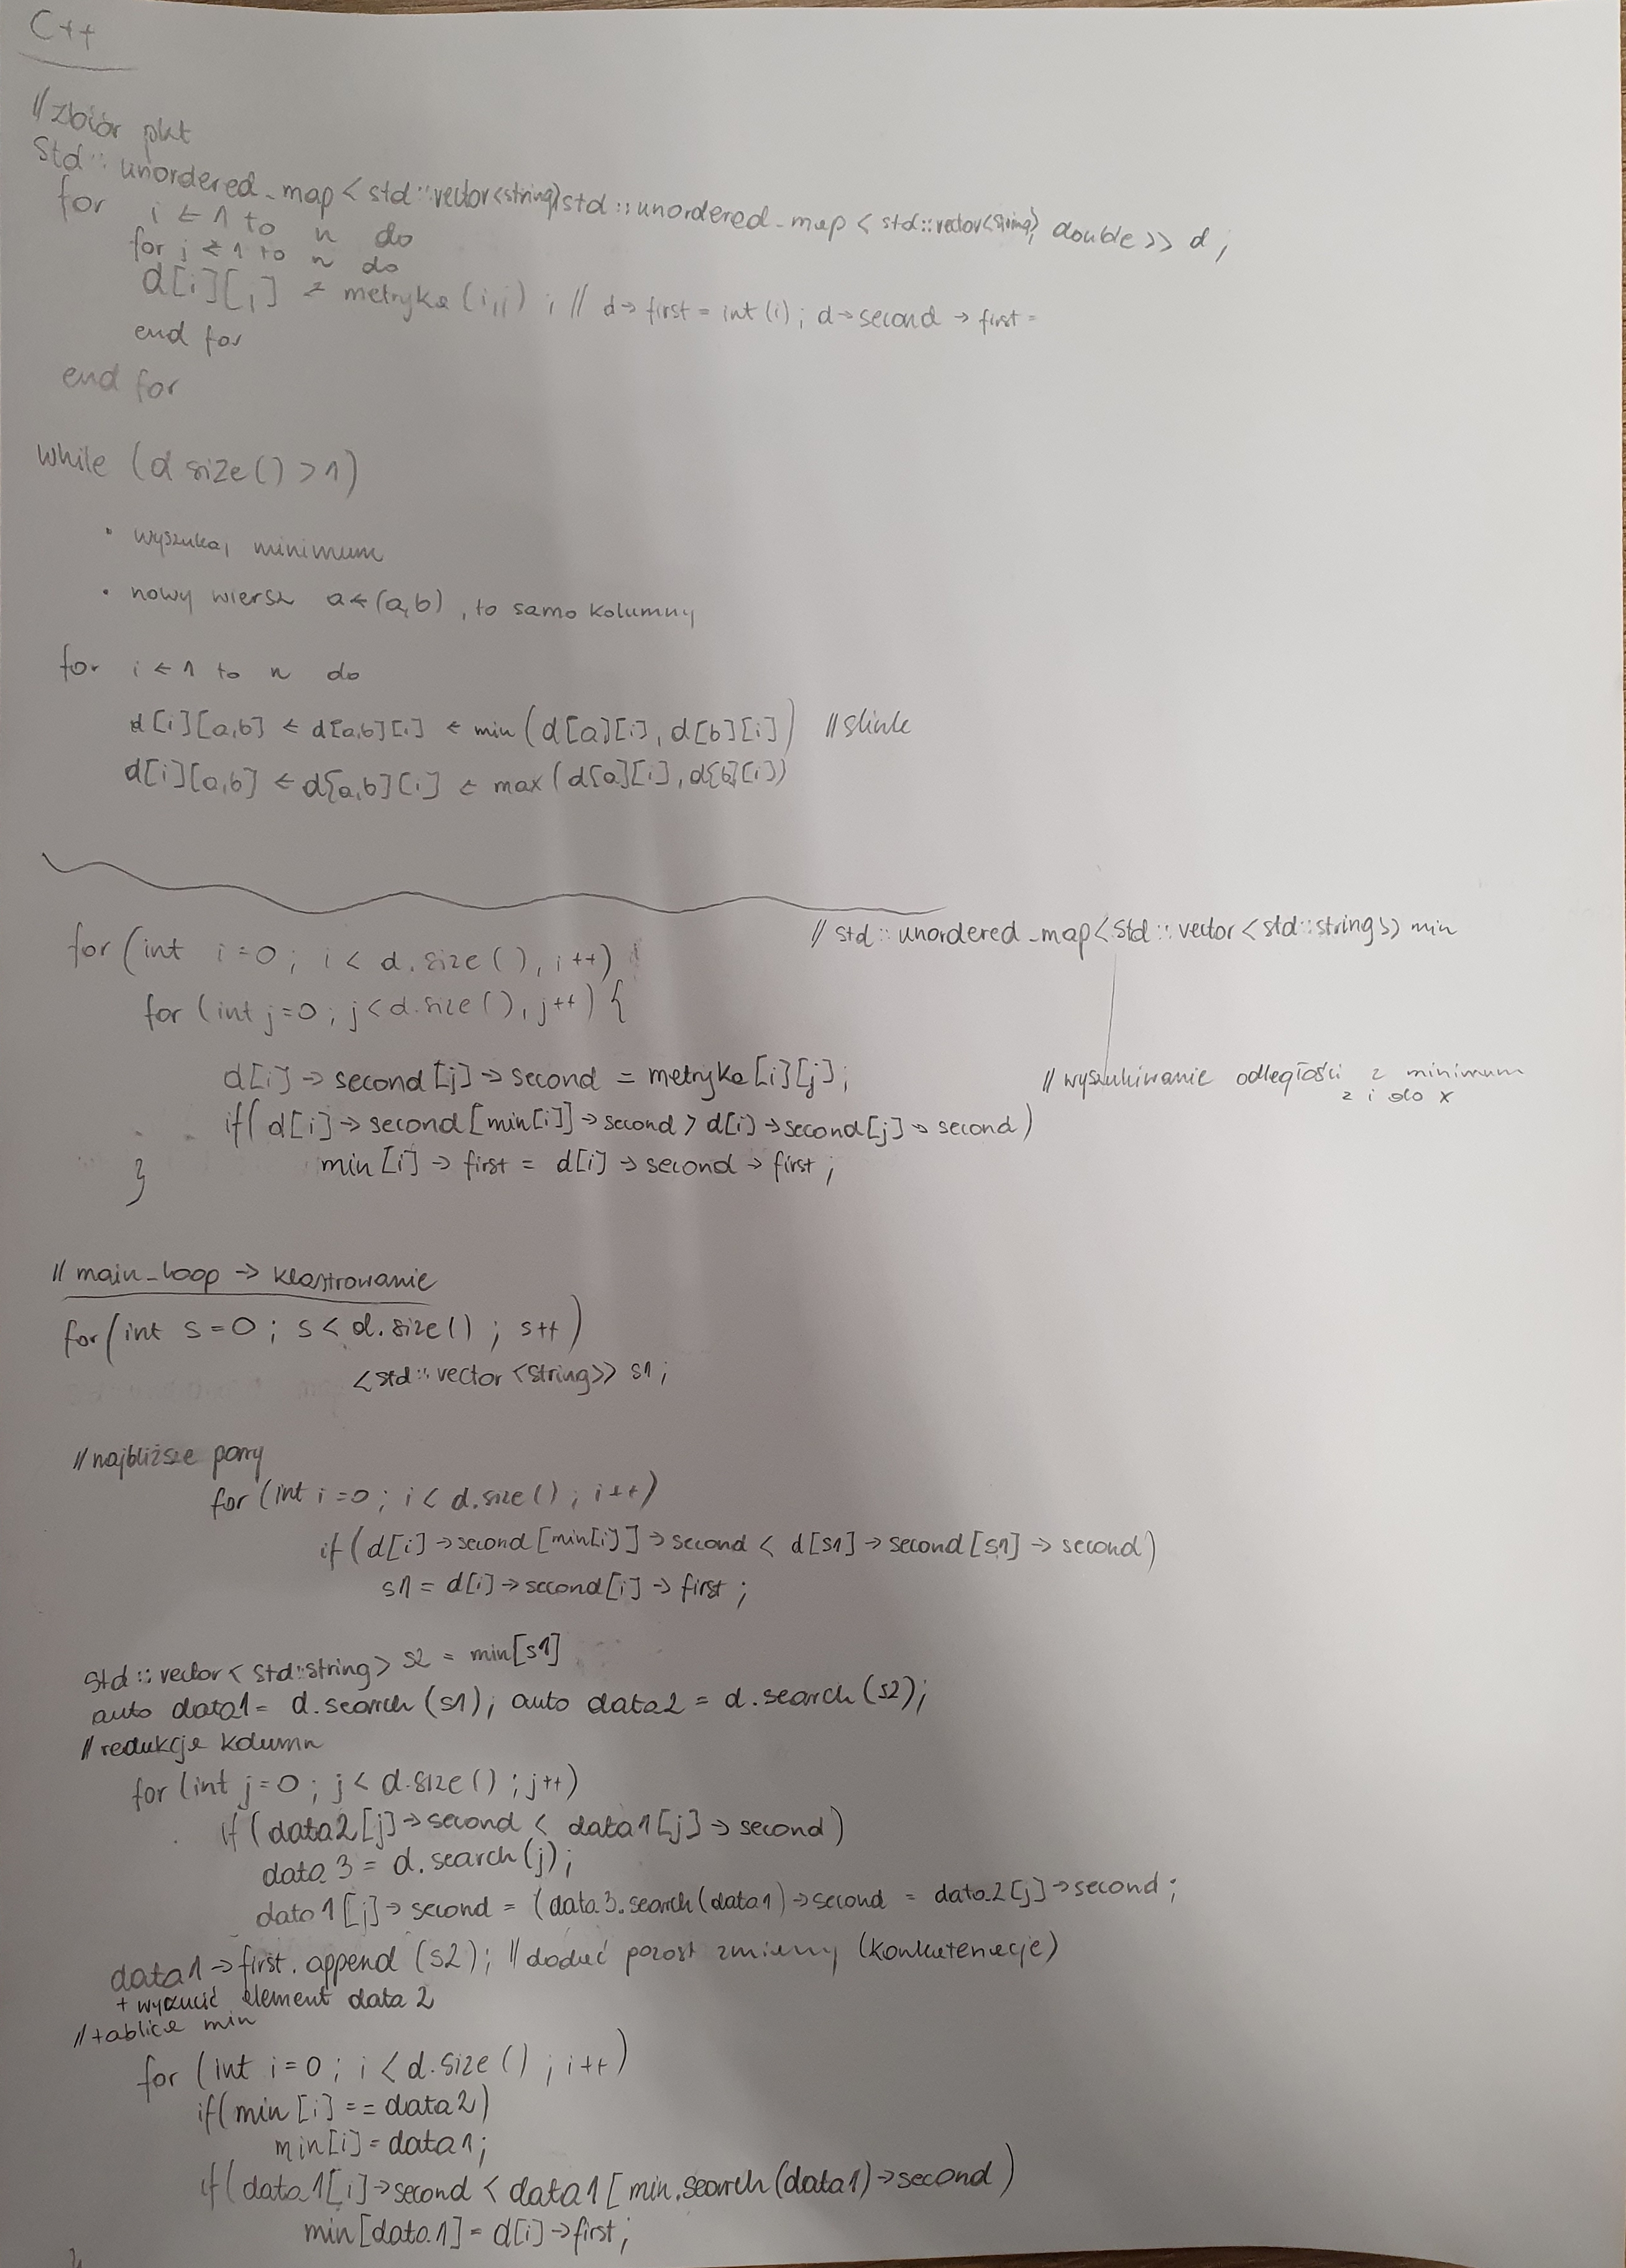 C++
// zbiór pkt
std::unordered_map<std::vector<string>, std::unordered_map<std::vector<string>, double>> d;
for i ← 1 to n do
for j ← 1 to n do
d[i][j] = metryka(i,j); // d→first = int(i); d→second→first =
end for
end for
while (d size() > 1)
• wyszukaj minimum
• nowy wiersz a←(a,b), to samo kolumny
for i ← 1 to n do
d[i][a,b] ← d[a,b][i] ← min(d[a][i], d[b][i]) // slink
d[i][a,b] ← d[a,b][i] ← max(d[a][i], d[b][i])
// std::unordered_map<std::vector<std::string>> min
for (int i=0; i < d.size(), i++)
for (int j=0; j<d.size(), j++) {
d[i]→second[j]→second = metryka[i][j];
// wyszukiwanie odległości z minimum
z i do x
if(d[i]→second[min[i]]→second > d[i]→second[j]→second)
min[i]→first = d[i]→second→first;
}
// main_loop → klastrowanie
for(int s=0; s<d.size(); s++)
<std::vector<string>> s1;
// najbliższe pary
for (int i=0; i<d.size(); i++)
if(d[i]→second[min[i]]→second < d[s1]→second[s1]→second)
s1 = d[i]→second[i]→first;
std::vector<std::string> s2 = min[s1]
auto data1 = d.search(s1); auto data2 = d.search(s2);
// redukcja kolumn
for (int j=0; j<d.size(); j++)
if(data2[j]→second < data1[j]→second)
data3 = d.search(j);
data1[j]→second = (data3.search(data1)→second = data2[j]→second;
data1→first.append(s2); // dodać pozost zmienny (konkatenacje)
+ wyrzucić element data2
// tablice min
for (int i=0; i<d.size(); i++)
if(min[i]==data2)
min[i]=data1;
if(data1[i]→second < data1[min.search(data1)→second)
min[data1] = d[i]→first;
}